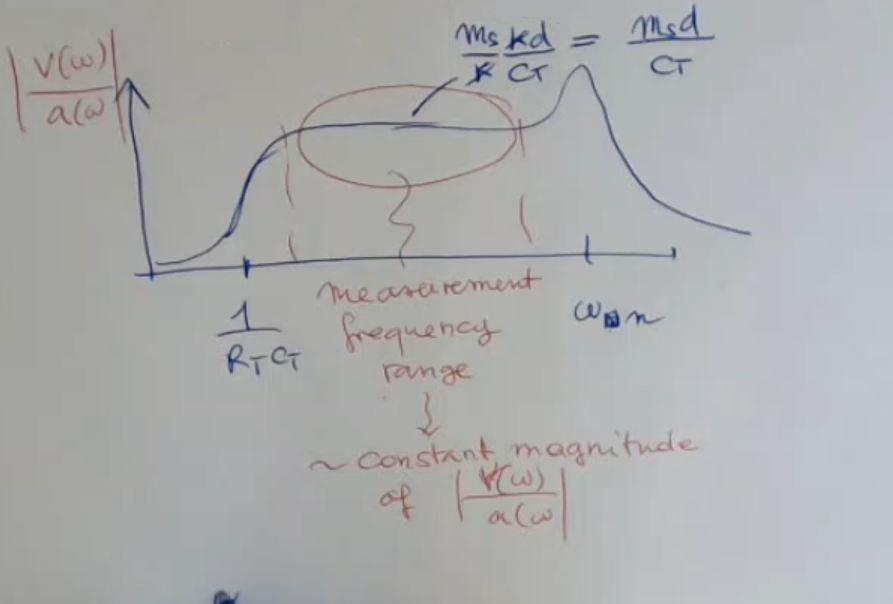 |V(ω)/a(ω|
ms/k kd/CT = msd/CT
1/RTCT
measurement
frequency
range
ωn
~ constant magnitude
of |V(ω)/a(ω|